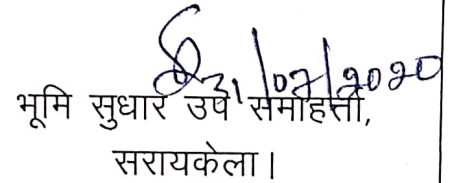 31/07/2020
भूमि सुधार उप समाहर्ता,
सरायकेला।